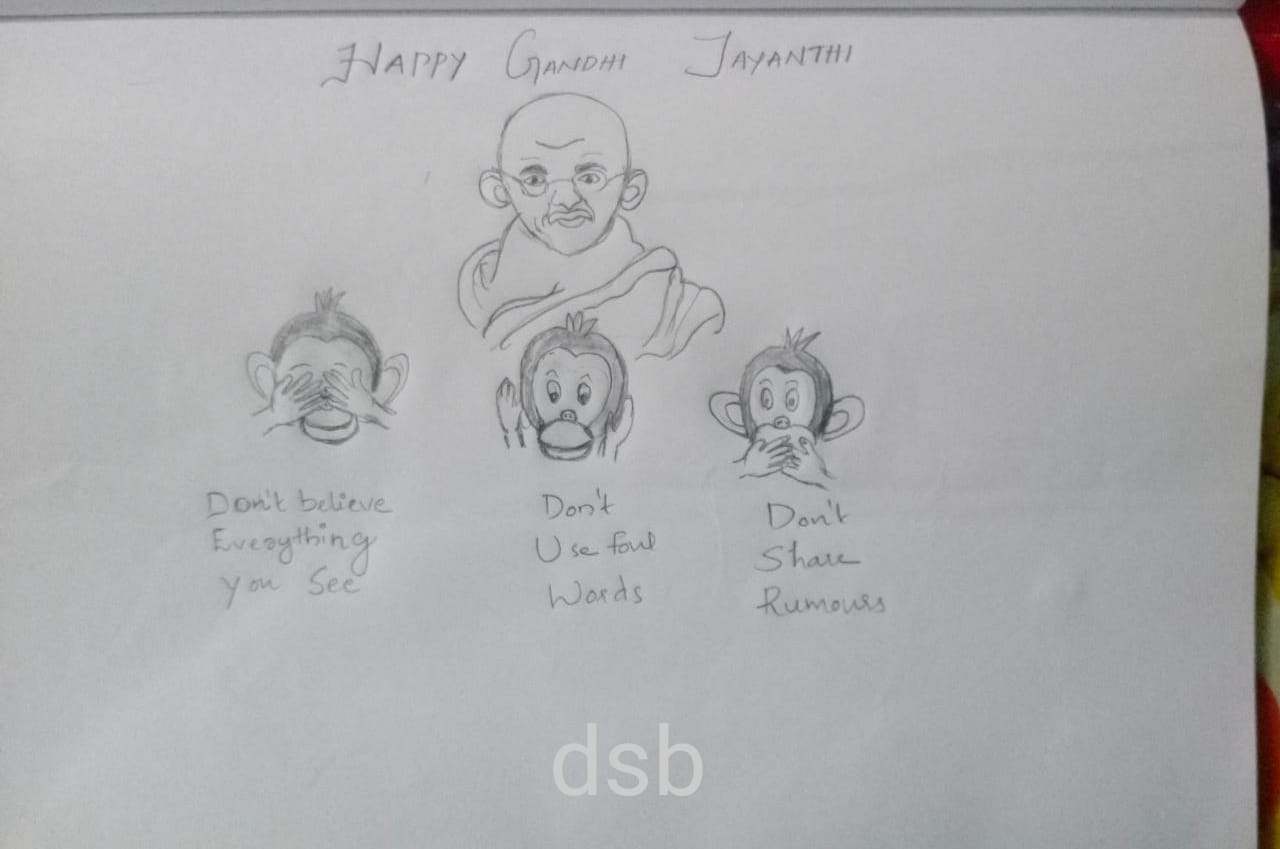 HAPPY GANDHI JAYANTHI
Don't believe
Everything
you See
Don't
Use foul
Words
Don't
Share
Rumours
dsb